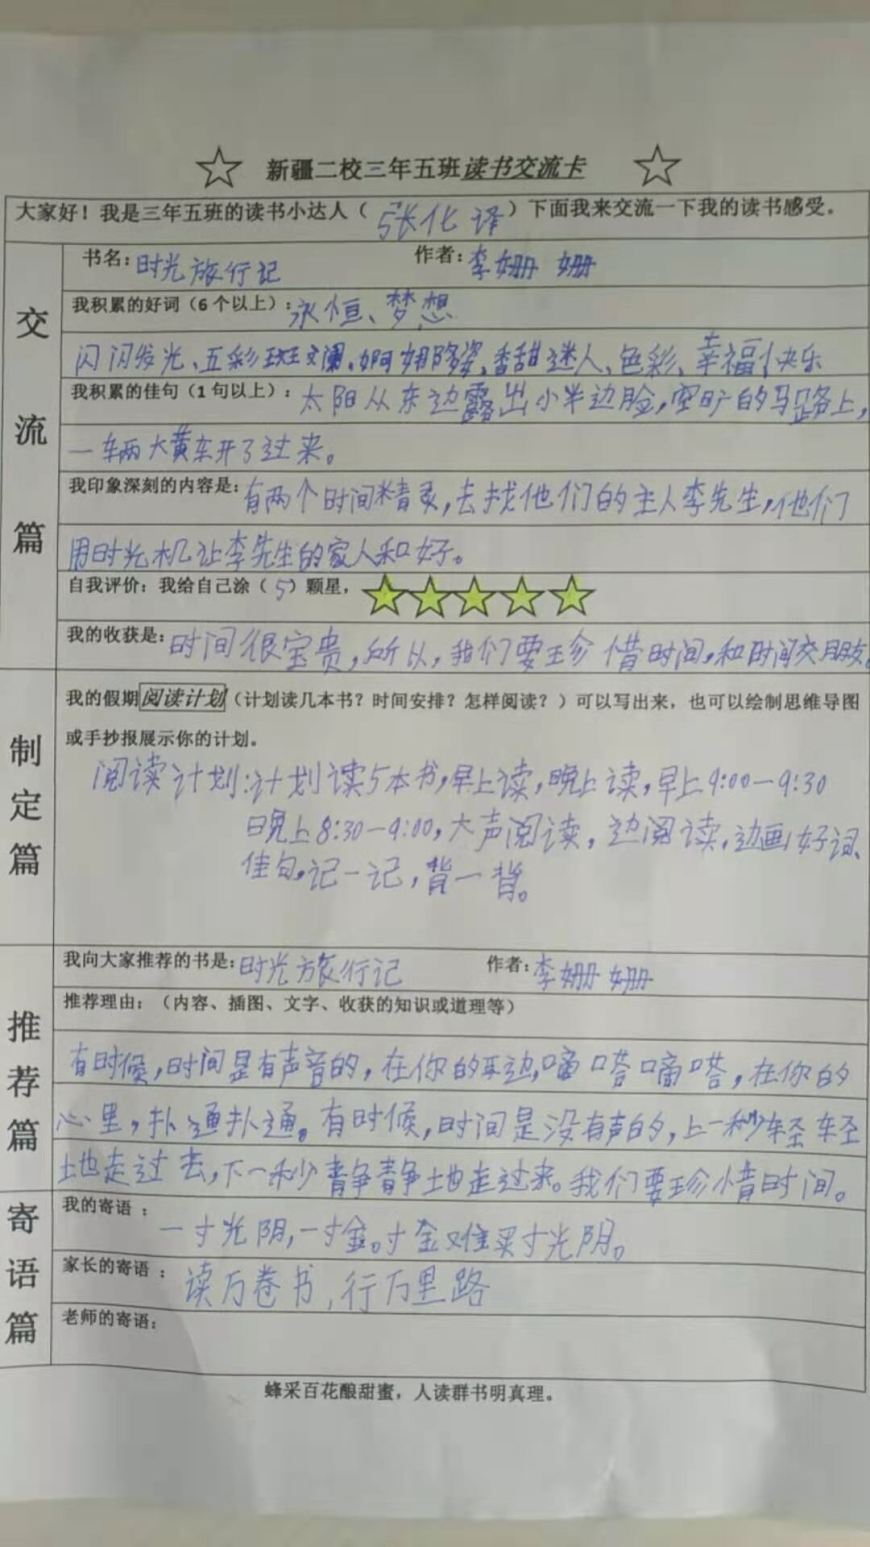 新疆二校三年五班读书交流卡
大家好！我是三年五班的读书小达人（张化译）下面我来交流一下我的读书感受。
交流篇
书名：时光旅行记 作者：李姗姗
我积累的好词（6个以上）：永恒、梦想
闪闪发光、五彩斑斓、婀娜多姿、香甜迷人、色彩、幸福快乐
我积累的佳句（1句以上）：太阳从东边露出小半边脸，空旷的马路上，
一辆大黄车开了过来。
我印象深刻的内容是：有两个时间精灵，去找他们的主人李先生，他们
用时光机让李先生的家人和好。
自我评价：我给自己涂（5）颗星，
我的收获是：时间很宝贵，所以，我们要珍惜时间，和时间交朋友
制定篇
我的假期阅读计划（计划读几本书？时间安排？怎样阅读？）可以写出来，也可以绘制思维导图
或手抄报展示你的计划。
阅读计划：计划读5本书，早上读，晚上读，早上9:00—9:30
晚上8:30—9:00，大声阅读，边阅读，边画好词、
佳句。记一记，背一背。
推荐篇
我向大家推荐的书是：时光旅行记 作者：李姗姗
推荐理由：（内容、插图、文字、收获的知识或道理等）
有时候，时间是有声音的，在你的耳边，嘀嗒嘀嗒，在你的
心里，扑通扑通。有时候，时间是没有声的，上一秒轻轻
地走过去，下一秒静静地走过来。我们要珍惜时间。
寄语篇
我的寄语：一寸光阴，一寸金。寸金难买寸光阴。
家长的寄语：读万卷书，行万里路
老师的寄语：
蜂采百花酿甜蜜，人读群书明真理。